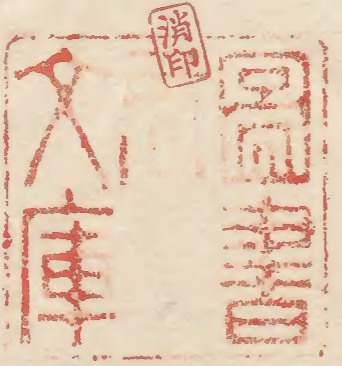 消印
圖書
文庫